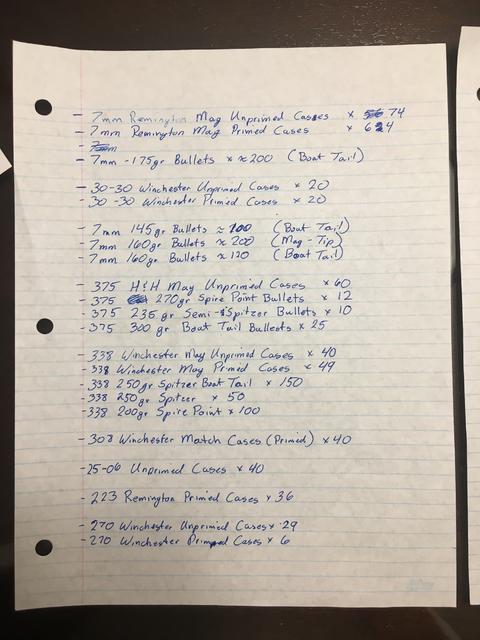 - 7mm Remington Mag Unprimed Cases x 74
- 7mm Remington Mag Primed Cases x 64
- 7mm
- 7mm - 175gr Bullets x ≈200 (Boat Tail)
- 30-30 Winchester Unprimed Cases x 20
- 30-30 Winchester Primed Cases x 20
- 7mm 145gr Bullets ≈ 100 (Boat Tail)
- 7mm 160gr Bullets ≈ 200 (Mag-Tip)
- 7mm 160gr Bullets ≈ 120 (Boat Tail)
- 375 H&H Mag Unprimed Cases x 60
- 375 270gr Spire Point Bullets x 12
- 375 235gr Semi-Spitzer Bullets x 10
- 375 300 gr Boat Tail Bullests x 25
- 338 Winchester Mag Unprimed Cases x 40
- 338 Winchester Mag Primed Cases x 49
- 338 250gr Spitzer Boat Tail x 150
- 338 250gr Spitzer x 50
- 338 200gr Spire Point x 100
- 308 Winchester Match Cases (Primed) x 40
- 25-06 Unprimed Cases x 40
- 223 Remington Primed Cases x 36
- 270 Winchester Unprimed Cases x 29
- 270 Winchester Primped Cases x 6